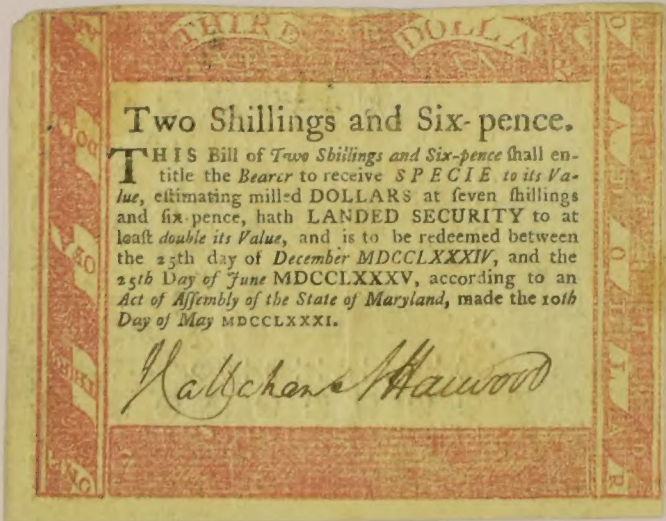 THIRD DOLLA
Two Shillings and Six-pence.
THIS Bill of Two Shillings and Six-pence ſhall en-
title the Bearer to receive SPECIE to its Va-
lue, eſtimating milled DOLLARS at ſeven ſhillings
and ſix-pence, hath LANDED SECURITY to at
leaſt double its Value, and is to be redeemed between
the 25th day of December MDCCLXXXIV, and the
25th Day of June MDCCLXXXV, according to an
Act of Aſſembly of the State of Maryland, made the 10th
Day of May MDCCLXXXI.
Harwood